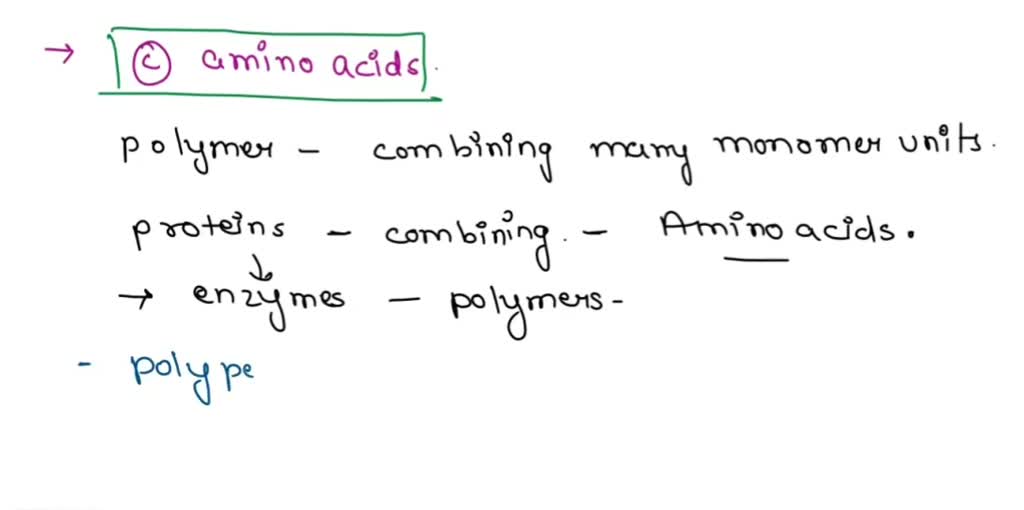 → ⓒ amino acids.
polymer - combining many monomer units.
proteins - combining. - Amino acids.
↓
→ enzymes - polymers -
- polype